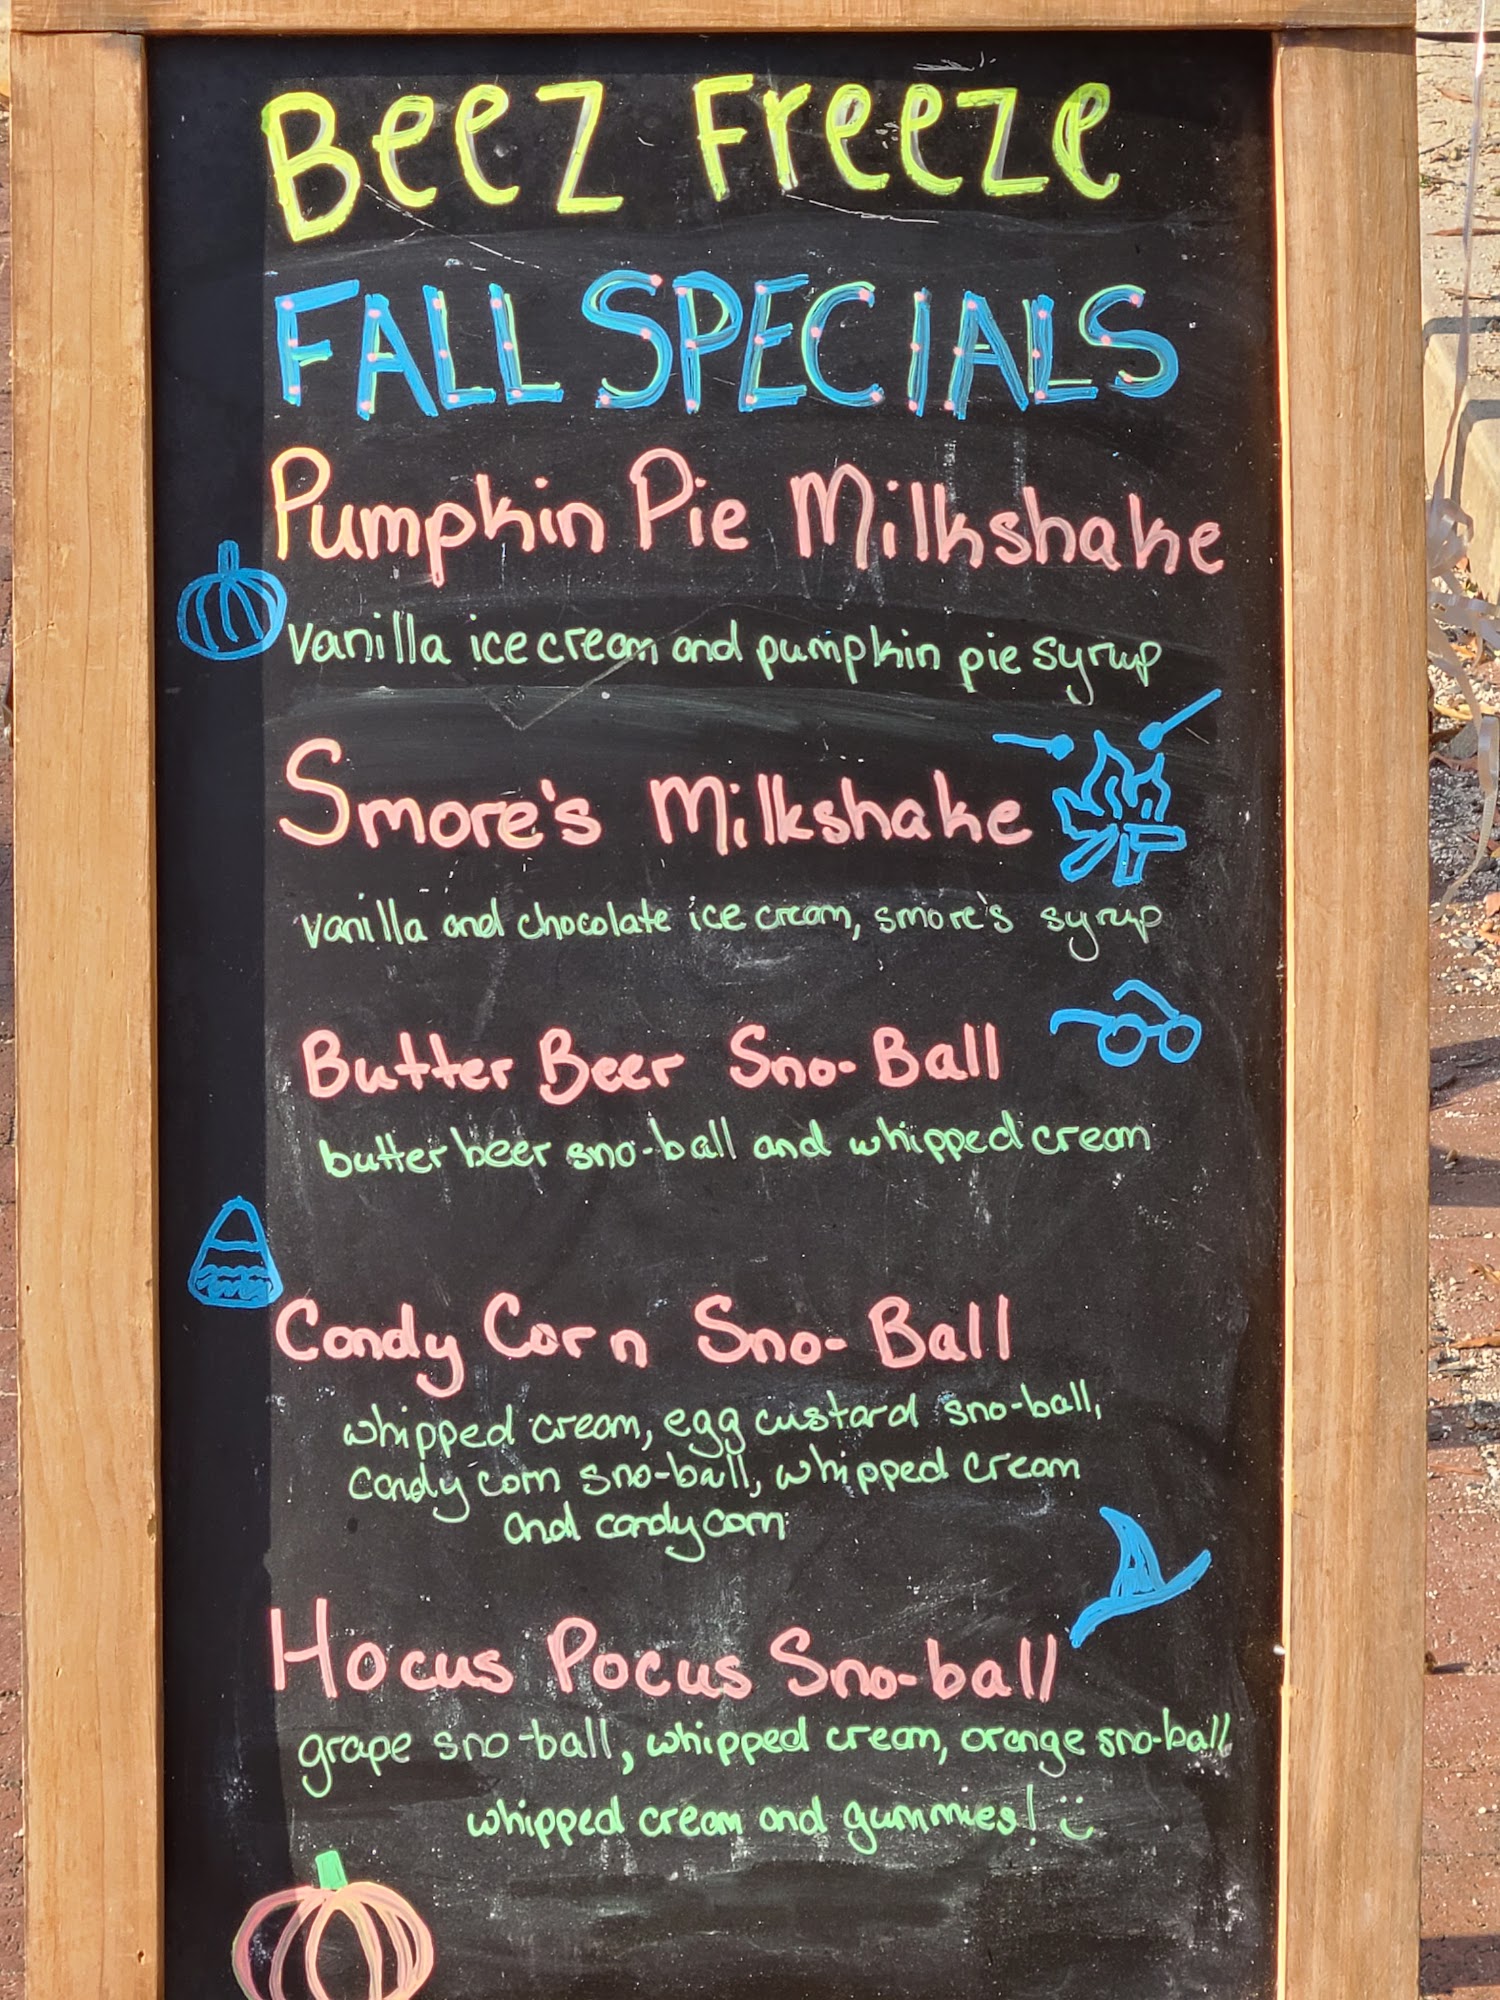 Beez Freeze
FALL SPECIALS
Pumpkin Pie Milkshake
vanilla ice cream and pumpkin pie syrup
Smore's Milkshake
vanilla and chocolate ice cream, smore's syrup
Butter Beer Sno-Ball
butter beer sno-ball and whipped cream
Candy Corn Sno-Ball
whipped cream, egg custard sno-ball,
candy corn sno-ball, whipped cream
and candy corn
Hocus Pocus Sno-ball
grape sno-ball, whipped cream, orange sno-ball
whipped cream and gummies!